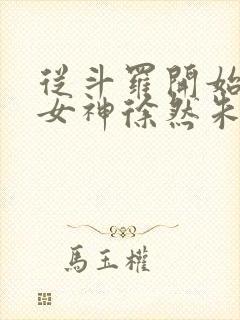 從斗羅開始
女神徐然朱
馬玉權